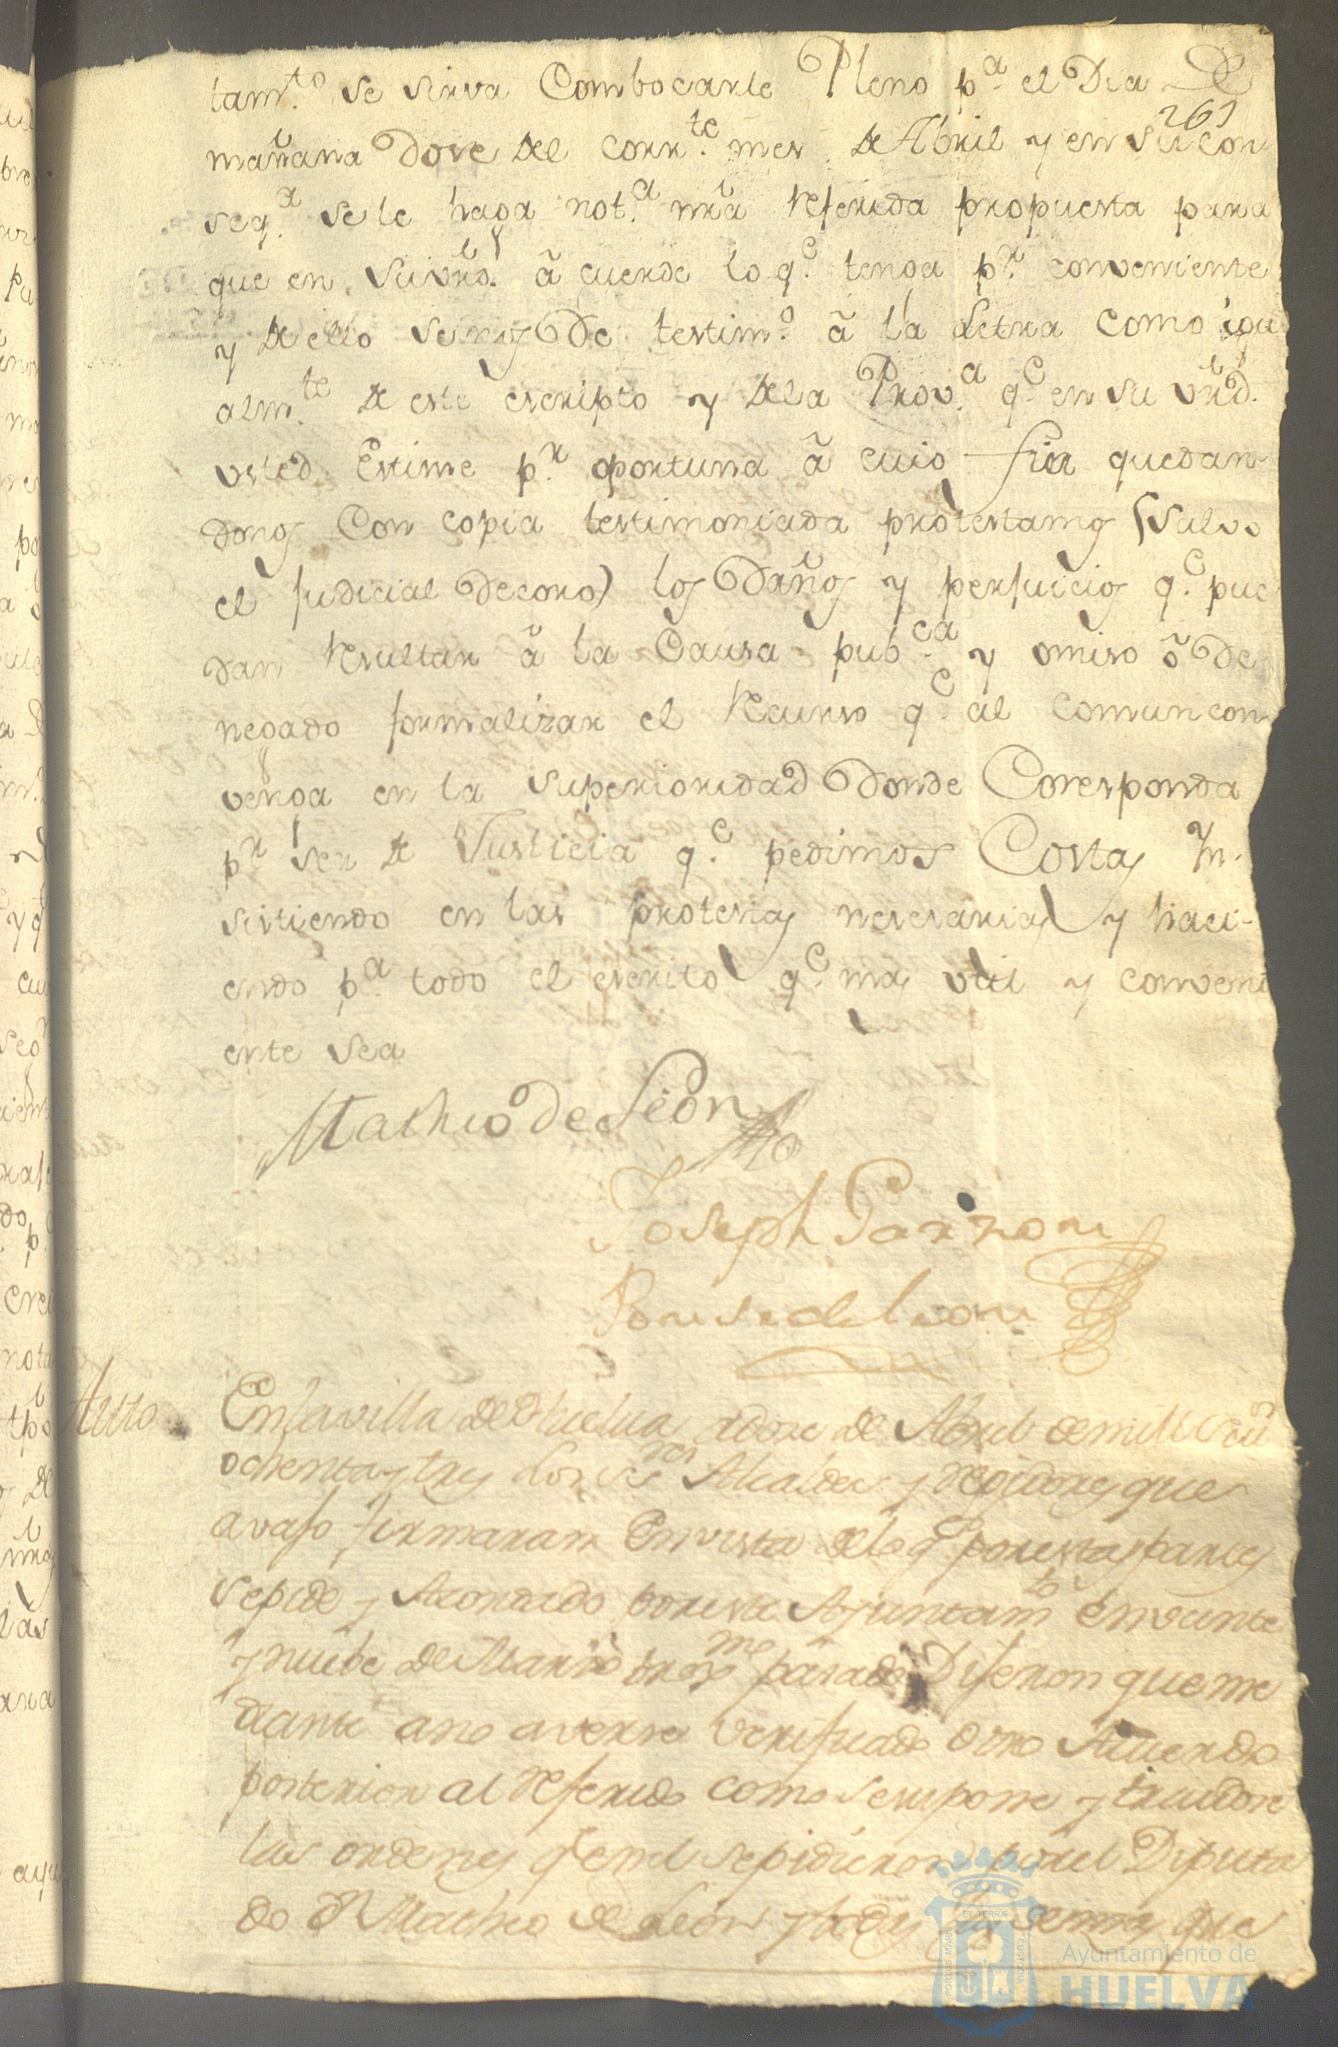 tam.to se sirva Combocarle Pleno p.a el Dia de
261
mañana Dose del corr.te mes de Abril y en su con
seq.a se le haga not.a nr̃a referida propuesta para
que en su vrd. â cuerde lo q.e tenga p.r conveniente
y de ello se nos De testim.o â la Letra como igu
alm.te de este escripto y dela Prov.a q.e en su vrd.
usted Estime p.r oportuna â cuio fin quedan
donos Con copia testimoniada protestamos (salvo
el judicial Decoro) los Daños y perjuicios q.e pue
dan resultar â la Causa pub.ca y omiso ô De
negado formalizar el recurso q.e al comun con
venga en la superioridad Donde Coresponda
p.r ser de Justicia q.e pedimos Costas In
sistiendo en las protestas nesesarias y haci-
endo p.a todo el escrito q.e mas util y conveni
ente sea
Matheo de Leon
Joseph Garzon
Ponse de leon
Auto
En la villa de Huelva a dose de Abril de mill setts
ochenta y tres Los SSres Alcaldes y Regidores que
avajo firmaran En vista delo q.e por estas partes
se pide y Acordado por este Ayuntam.to en veinte
y nuebe de Marzo proxmo pasado Dijeron que me
diante a no averse verificado otro Acuerdo
posterior al referido como se supone y traidose
las ordenes q.e en el se pidieron por el Diputa
do Dn Matheo de Leon y todas las demas que
Ayuntamiento de
HUELVA